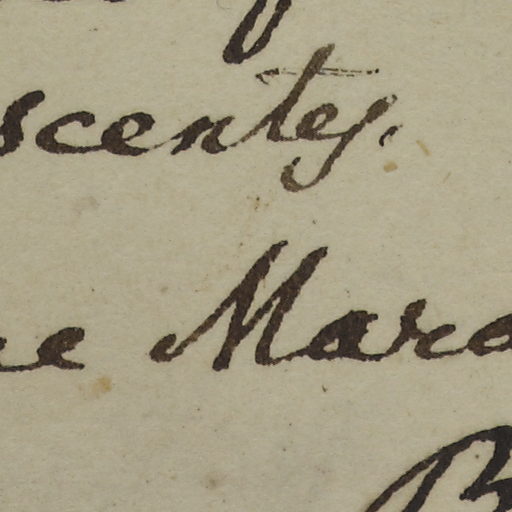 scentes.
e Mara
B